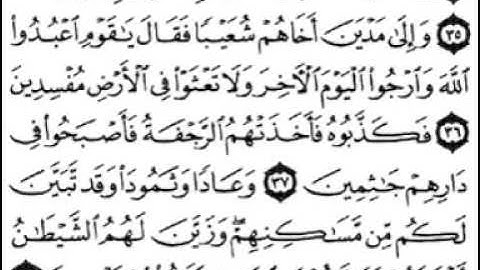 ﴿٣٥﴾ وَإِلَىٰ مَدْيَنَ أَخَاهُمْ شُعَيْبًا فَقَالَ يَٰقَوْمِ ٱعْبُدُوا۟
ٱللَّهَ وَٱرْجُوا۟ ٱلْيَوْمَ ٱلْءَاخِرَ وَلَا تَعْثَوْا۟ فِى ٱلْأَرْضِ مُفْسِدِينَ
﴿٣٦﴾ فَكَذَّبُوهُ فَأَخَذَتْهُمُ ٱلرَّجْفَةُ فَأَصْبَحُوا۟ فِى
دَارِهِمْ جَٰثِمِينَ ﴿٣٧﴾ وَعَادًا وَثَمُودَا۟ وَقَد تَّبَيَّنَ
لَكُم مِّن مَّسَٰكِنِهِمْ ۖ وَزَيَّنَ لَهُمُ ٱلشَّيْطَٰنُ